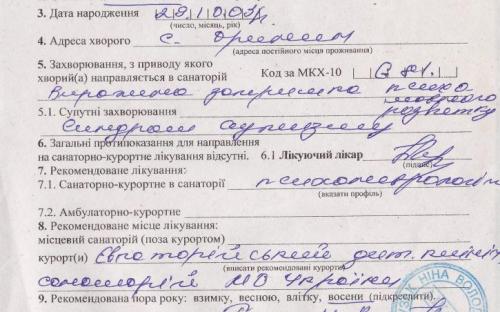 3. Дата народження 29.10.03р.
(число, місяць, рік)
4. Адреса хворого с.
(адреса постійного місця проживання)
5. Захворювання, з приводу якого
хворий(а) направляється в санаторій Код за МКХ-10 G
Виражена затримка психо
мовного
5.1. Супутні захворювання розвитку
Синдром аутизму
6. Загальні протипоказання для направлення
на санаторно-курортне лікування відсутні. 6.1 Лікуючий лікар
(підпис)
7. Рекомендоване лікування:
7.1. Санаторно-курортне в санаторії психоневрологіч
(вказати профіль)
7.2. Амбулаторно-курортне
8. Рекомендоване місце лікування:
місцевий санаторій (поза курортом)
курорт(и) Євпаторійський дит. клініч
(вписати рекомендовані курорти)
санаторій МО України
9. Рекомендована пора року: взимку, весною, влітку, восени (підкреслити).
НІНА ВОЛО